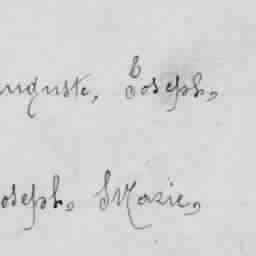 uguste, Joseph,
oseph, Marie,